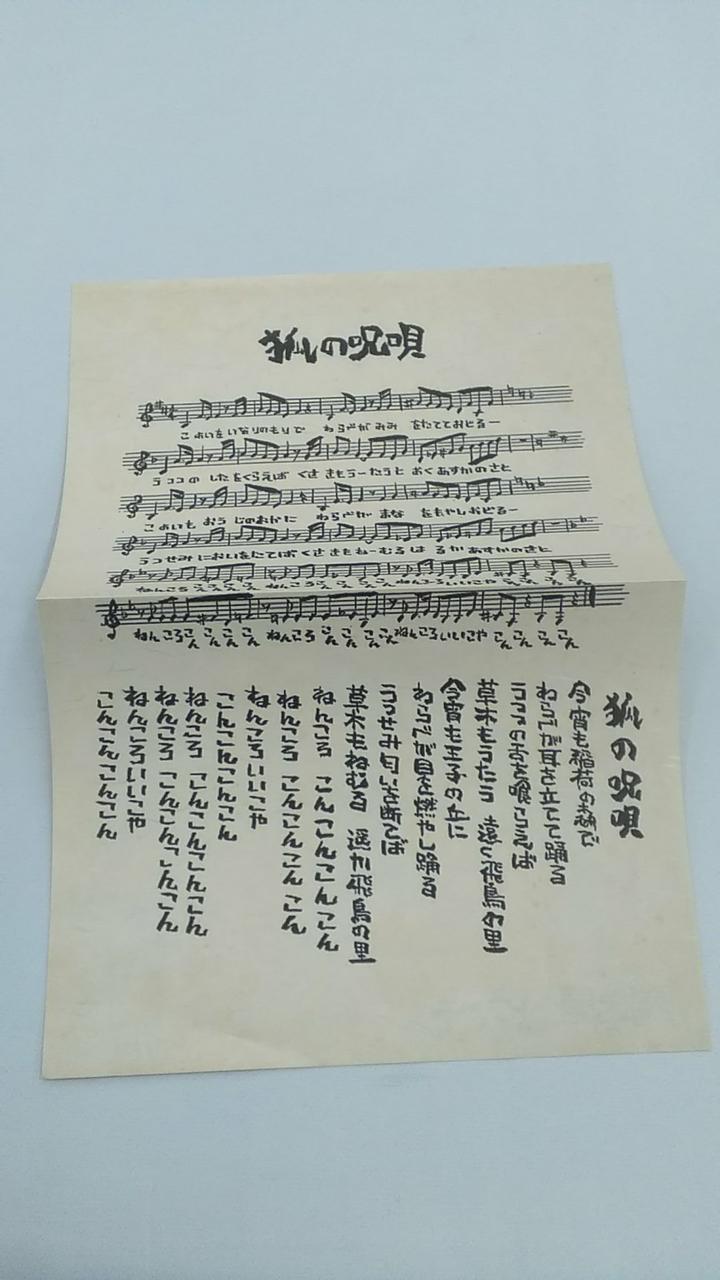 狐の呪唄
こよいもいなりのもりで わらべがみみ をたてておどるー
うココの したをくらえば くさ きもうーたうと おくあすかのさと
こよいも おうじのおかに わらべが まな をもやしおどるー
うつせみ においをたてば くさ きもねーむるは るか あすかのさと
ねんころ こんこんこんこん ねんころ こんこんこんこん ねんころいいこや こんこんこんこん
ねんころ こんこんこんこん ねんころ こんこんこんこん ねんころいいこや こんこんこんこん
狐の呪唄
今宵も稲荷の森で
わらべが耳を立てて踊る
うココの舌を喰らえば
草木もうたう 遠く飛鳥の里
今宵も王子の丘に
わらべが目を燃やし踊る
うつせみ匂い右断てば
草木もねむる 遥か飛鳥の里
ねんころ こんこんこんこん
ねんころ こんこんこんこん
ねんころいいこや
こんこんこんこん
ねんころ こんこんこんこん
ねんころ こんこんこんこん
ねんころいいこや
こんこんこんこん